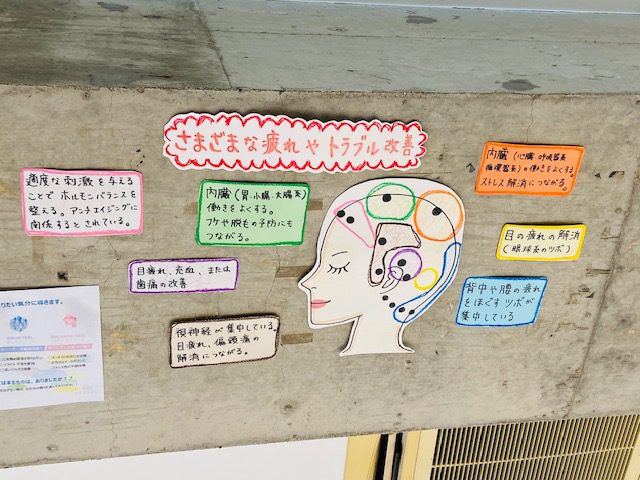 さまざまな疲れやトラブル改善
適度な刺激を与える
ことでホルモンバランスを
整える。アンチエイジングに
関係するとされている。
内臓（胃.小腸.大腸系）
働きをよくする。
フケや脱毛の予防にも
つながる。
内臓（心臓.呼吸器系
循環器系）の働きをよくする。
ストレス解消につながる。
目の疲れの解消
（眼球系のツボ）
目疲れ、充血、または
歯痛の改善
背中や腰の疲れ
をほぐすツボが
集中している
視神経が集中している。
目疲れ、偏頭痛の
解消につながる。
りたい気分に導きます。
はまるものは、ありましたか？？